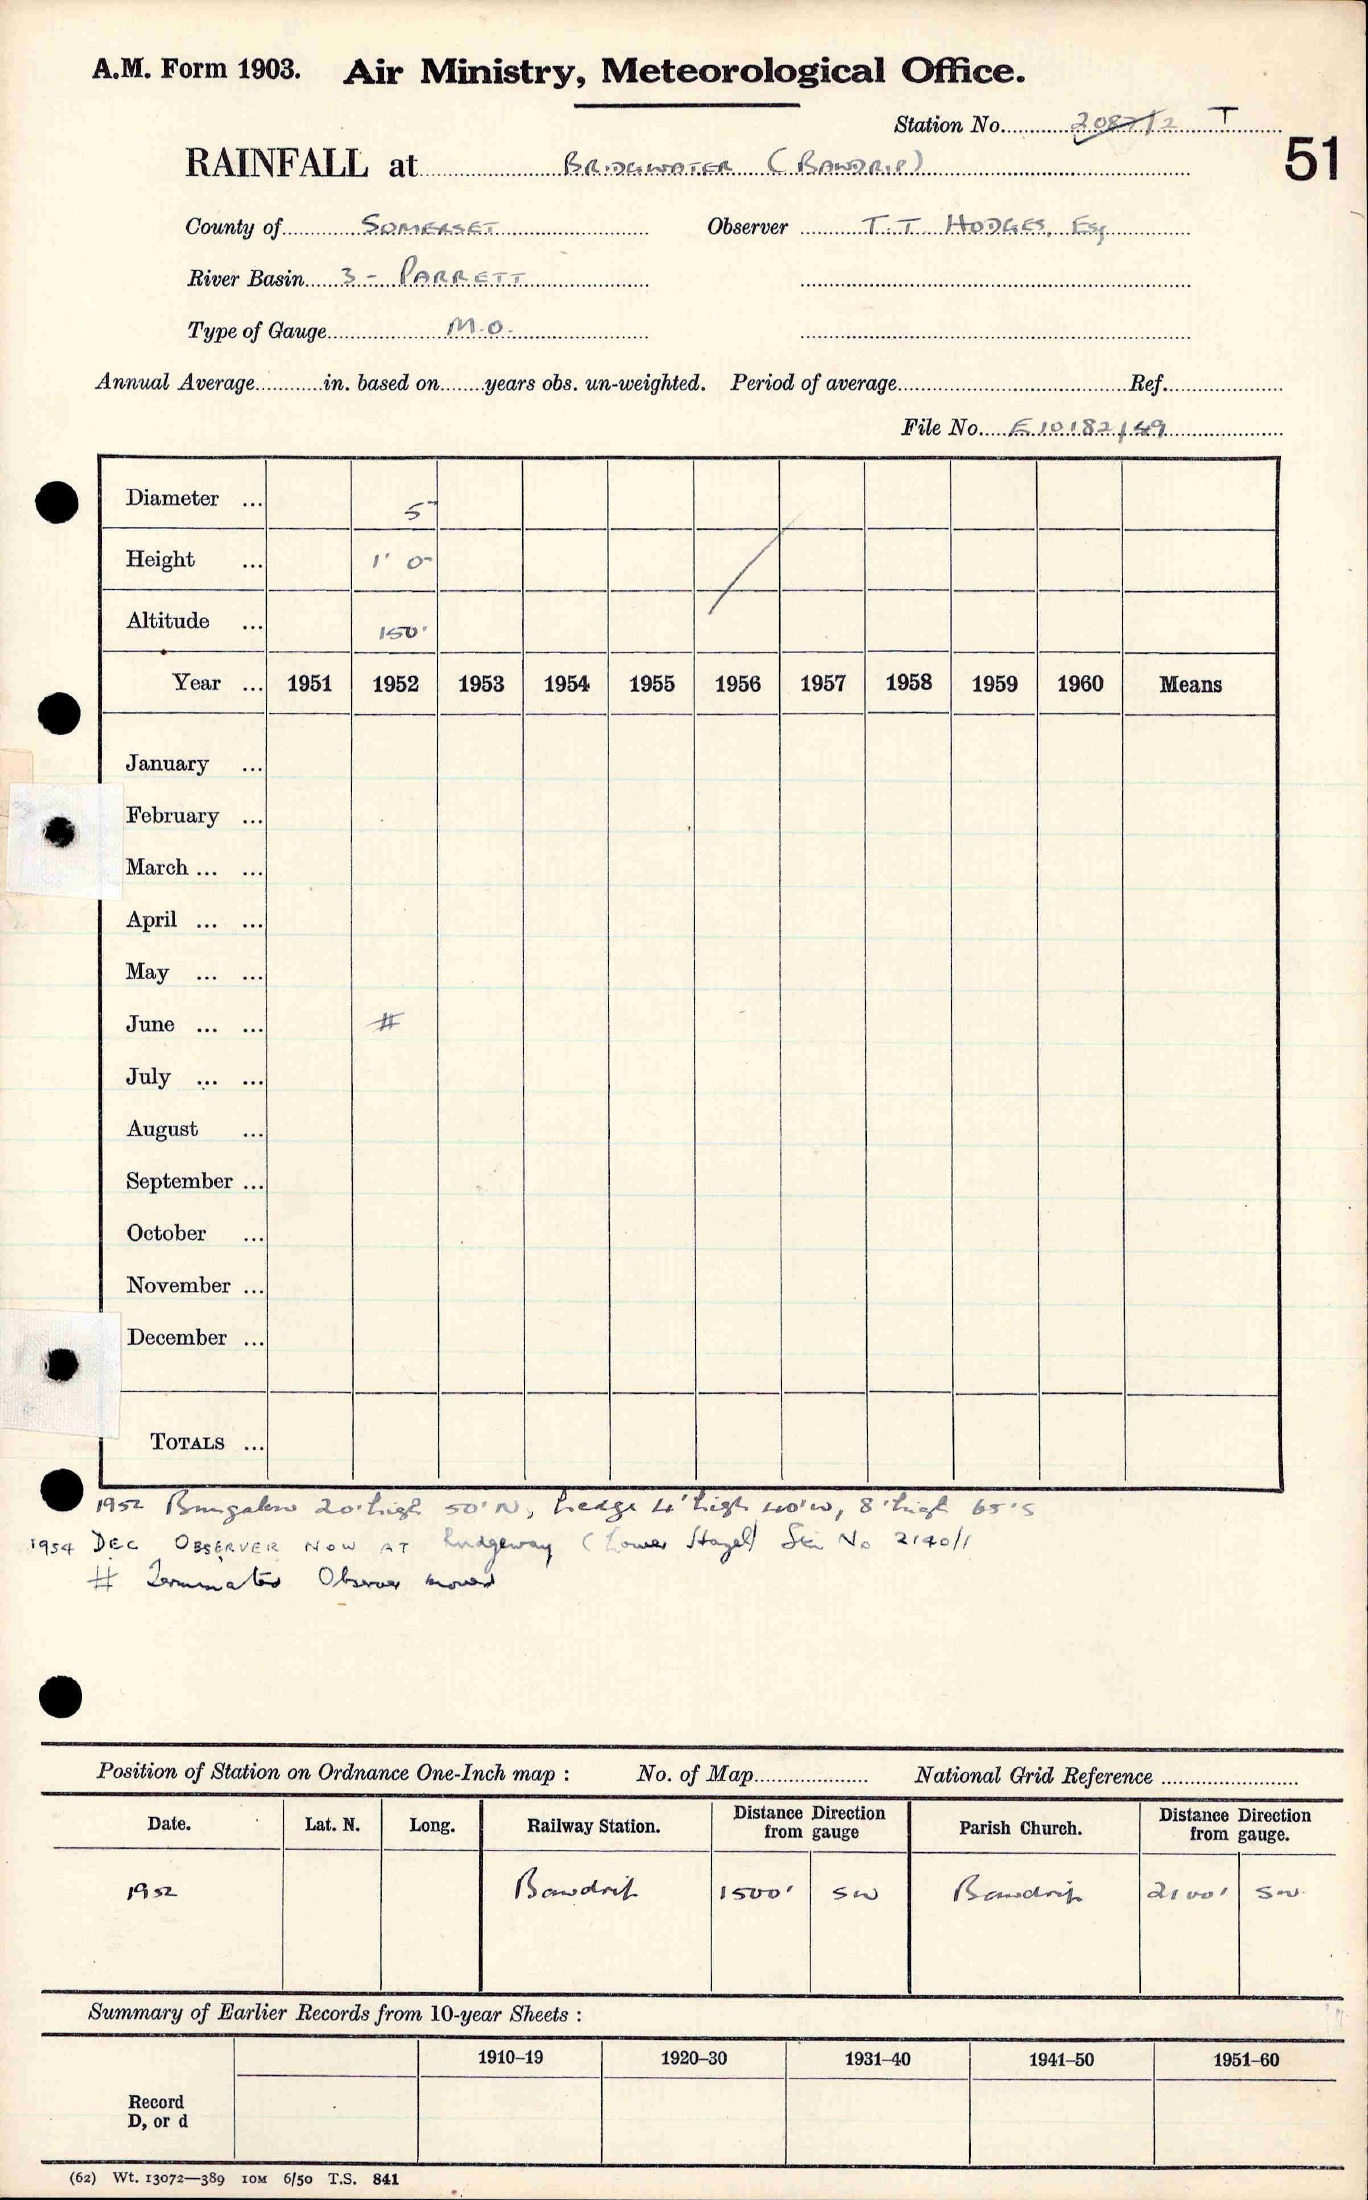 A.M. Form 1903. Air Ministry, Meteorological Office.
Station No. 2087/2 T
51
RAINFALL at BRIDGWATER (BAWDRIP)
County of SOMERSET Observer T.T. HODGES, Esq
River Basin 3 - PARRETT
Type of Gauge M.O.
Annual Average in. based on years obs. un-weighted. Period of average Ref.
File No. E10182/49
Diameter ... 5"
Height ... 1' 0"
Altitude ... 150'
Year ... 1951 1952 1953 1954 1955 1956 1957 1958 1959 1960 Means
January ...
February ...
March ... ...
April ... ...
May ... ...
June ... ... #
July ... ...
August ...
September ...
October ...
November ...
December ...
TOTALS ...
1952 Bungalow 20' high 50' N, hedge 4' high 40' W, 8' high 65' S
1954 DEC OBSERVER NOW AT Rudgeway (Lower Hazel) Stn No 2140/1
# Terminated Observer moved
Position of Station on Ordnance One-Inch map : No. of Map National Grid Reference
Date. Lat. N. Long. Railway Station. Distance Direction from gauge Parish Church. Distance Direction from gauge.
1952 Bawdrip 1500' SW Bawdrip 2100' SW
Summary of Earlier Records from 10-year Sheets :
1910–19 1920–30 1931–40 1941–50 1951–60
Record
D, or d
(62) Wt. 13072—389 10M 6/50 T.S. 841